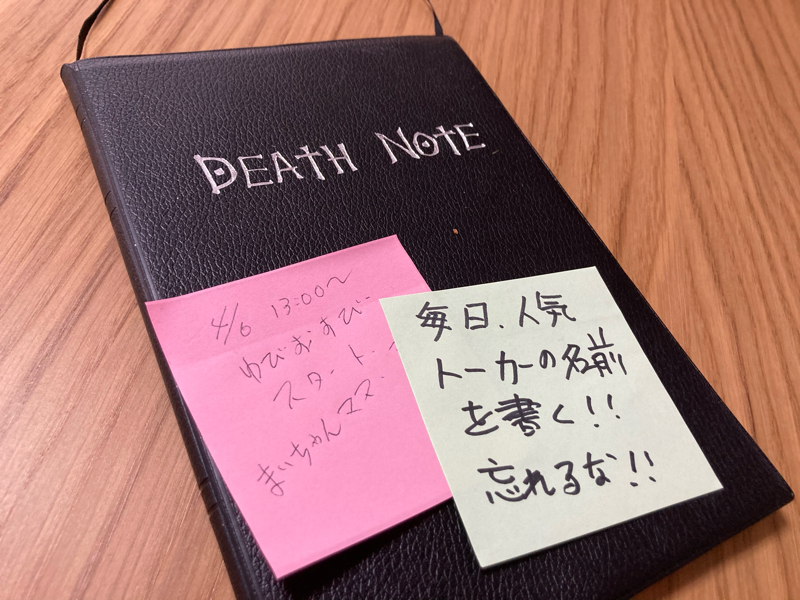 DEATH NOTE
4/6 13:00〜
スタート
まいちゃん
毎日、人気
トーカーの名前
を書く!!
忘れるな!!